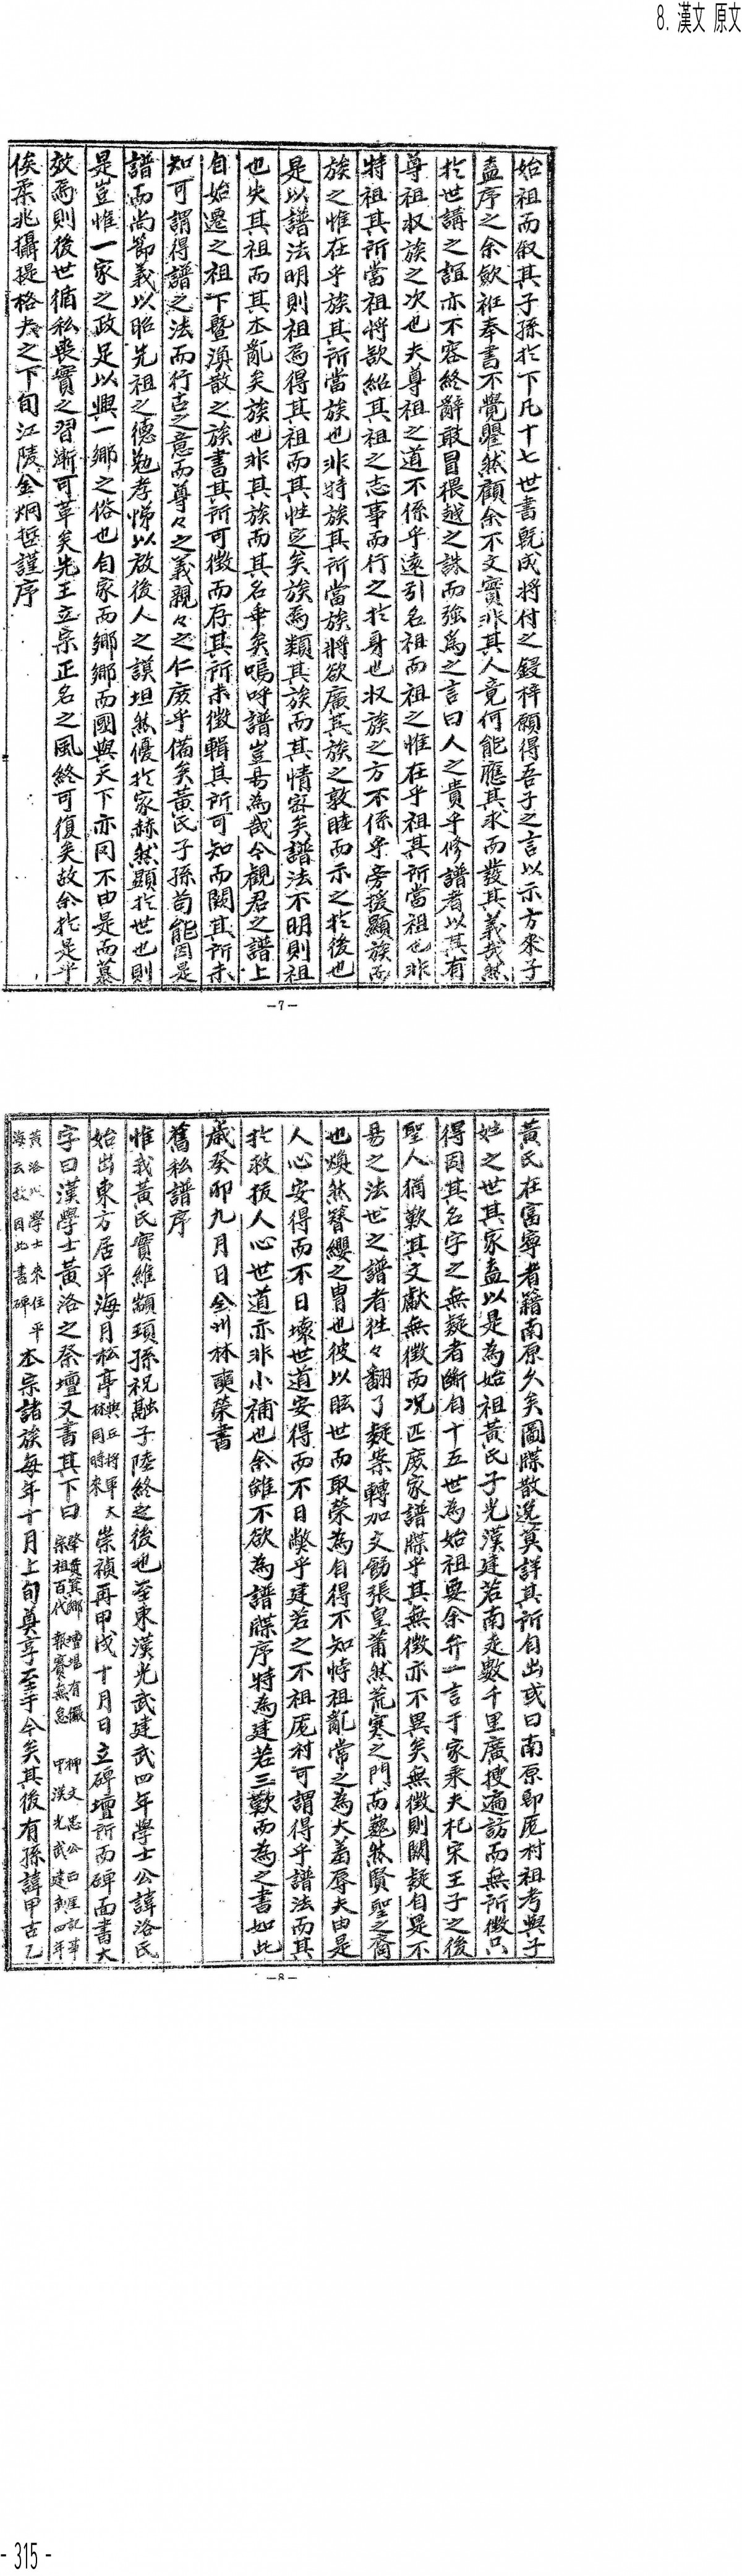 8. 漢文 原文
始祖而叙其子孫於下凡十七世書旣成將付之鋟梓願得吾子之言以示方來子
盍序之余歛袵奉書不覺瞿然顧余不文實非其人竟何能應其求而發其義哉然
於世講之誼亦不容終辭敢冒猥越之誅而強爲之言曰人之貴乎修譜者以其有
尊祖収族之次也夫尊祖之道不係乎遠引名祖而祖之惟在乎祖其所當祖也非
特祖其所當祖將欲紹其祖之志事而行之於身也収族之方不係乎旁援顯族而
族之惟在乎族其所當族也非特族其所當族將欲廣其族之敦睦而示之於後也
是以譜法明則祖爲得其祖而其性定矣族爲類其族而其情密矣譜法不明則祖
也失其祖而其本亂矣族也非其族而其名乖矣嗚呼譜豈易為哉今觀君之譜上
自始遷之祖下曁渙散之族書其所可徵而存其所未徵輯其所可知而闕其所未
知可謂得譜之法而行古之意而尊々之義親々之仁庶乎備矣黃氏子孫苟能因是
譜而尚節義以昭先祖之德勉孝悌以啟後人之謨坦然優於家赫然顯於世也則
是豈惟一家之政足以興一鄉之俗也自家而鄉鄉而國與天下亦罔不由是而慕
效焉則後世循私喪實之習漸可革矣先王立宗正名之風終可復矣故余於是乎
俟柔兆攝提格夫之下旬江陵金炯哲謹序
-7-
黃氏在富寧者籍南原久矣圖牒散逸莫詳其所自出或曰南原卽厖村祖考與子
姓之世其家盍以是為始祖黃氏子光漢建若南走數千里廣搜遍訪而無所徵只
得因其名字之無疑者斷自十五世為始祖要余弁一言于家乘夫杞宋王子之後
聖人猶歎其文獻無徵而况匹庶家譜牒乎其無徵亦不異矣無徵則闕疑自是不
易之法世之譜者徃々翻了疑案轉加文餙張皇莆然荒寒之門而巍然賢聖之裔
也煥然簪纓之胄也彼以眩世而取榮為自得不知恃祖亂常之為大羞辱夫由是
人心安得而不日壞世道安得而不日斃乎建若之不祖厖村可謂得乎譜法而其
於救扳人心世道亦非小補也余雖不欲為譜牒序特為建若三歎而為之書如此
歲癸卯九月日全州林奭榮書
舊私譜序
惟我黃氏實維顓頊孫祝融子陸終之後也至東漢光武建武四年學士公諱洛氏
始出東方居平海月松亭與丘將軍大林同時來崇禎再甲戌十月日立碑壇所而碑面書大
字曰漢學士黃洛之祭壇又書其下曰肇賁箕鄉壇場有儼宗祖百代報賽無怠柳文忠公西厓記事甲漢光武建武四年
黃洛以學士來住平海云故因此書碑本宗諸族每年十月上旬奠享至于今矣其後有孫諱甲古乙
-8-
- 315 -